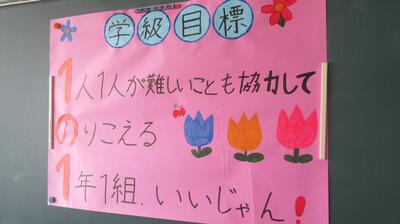 学級目標
1人1人が難しいことも協力して
のりこえる
1年1組.いいじゃん!